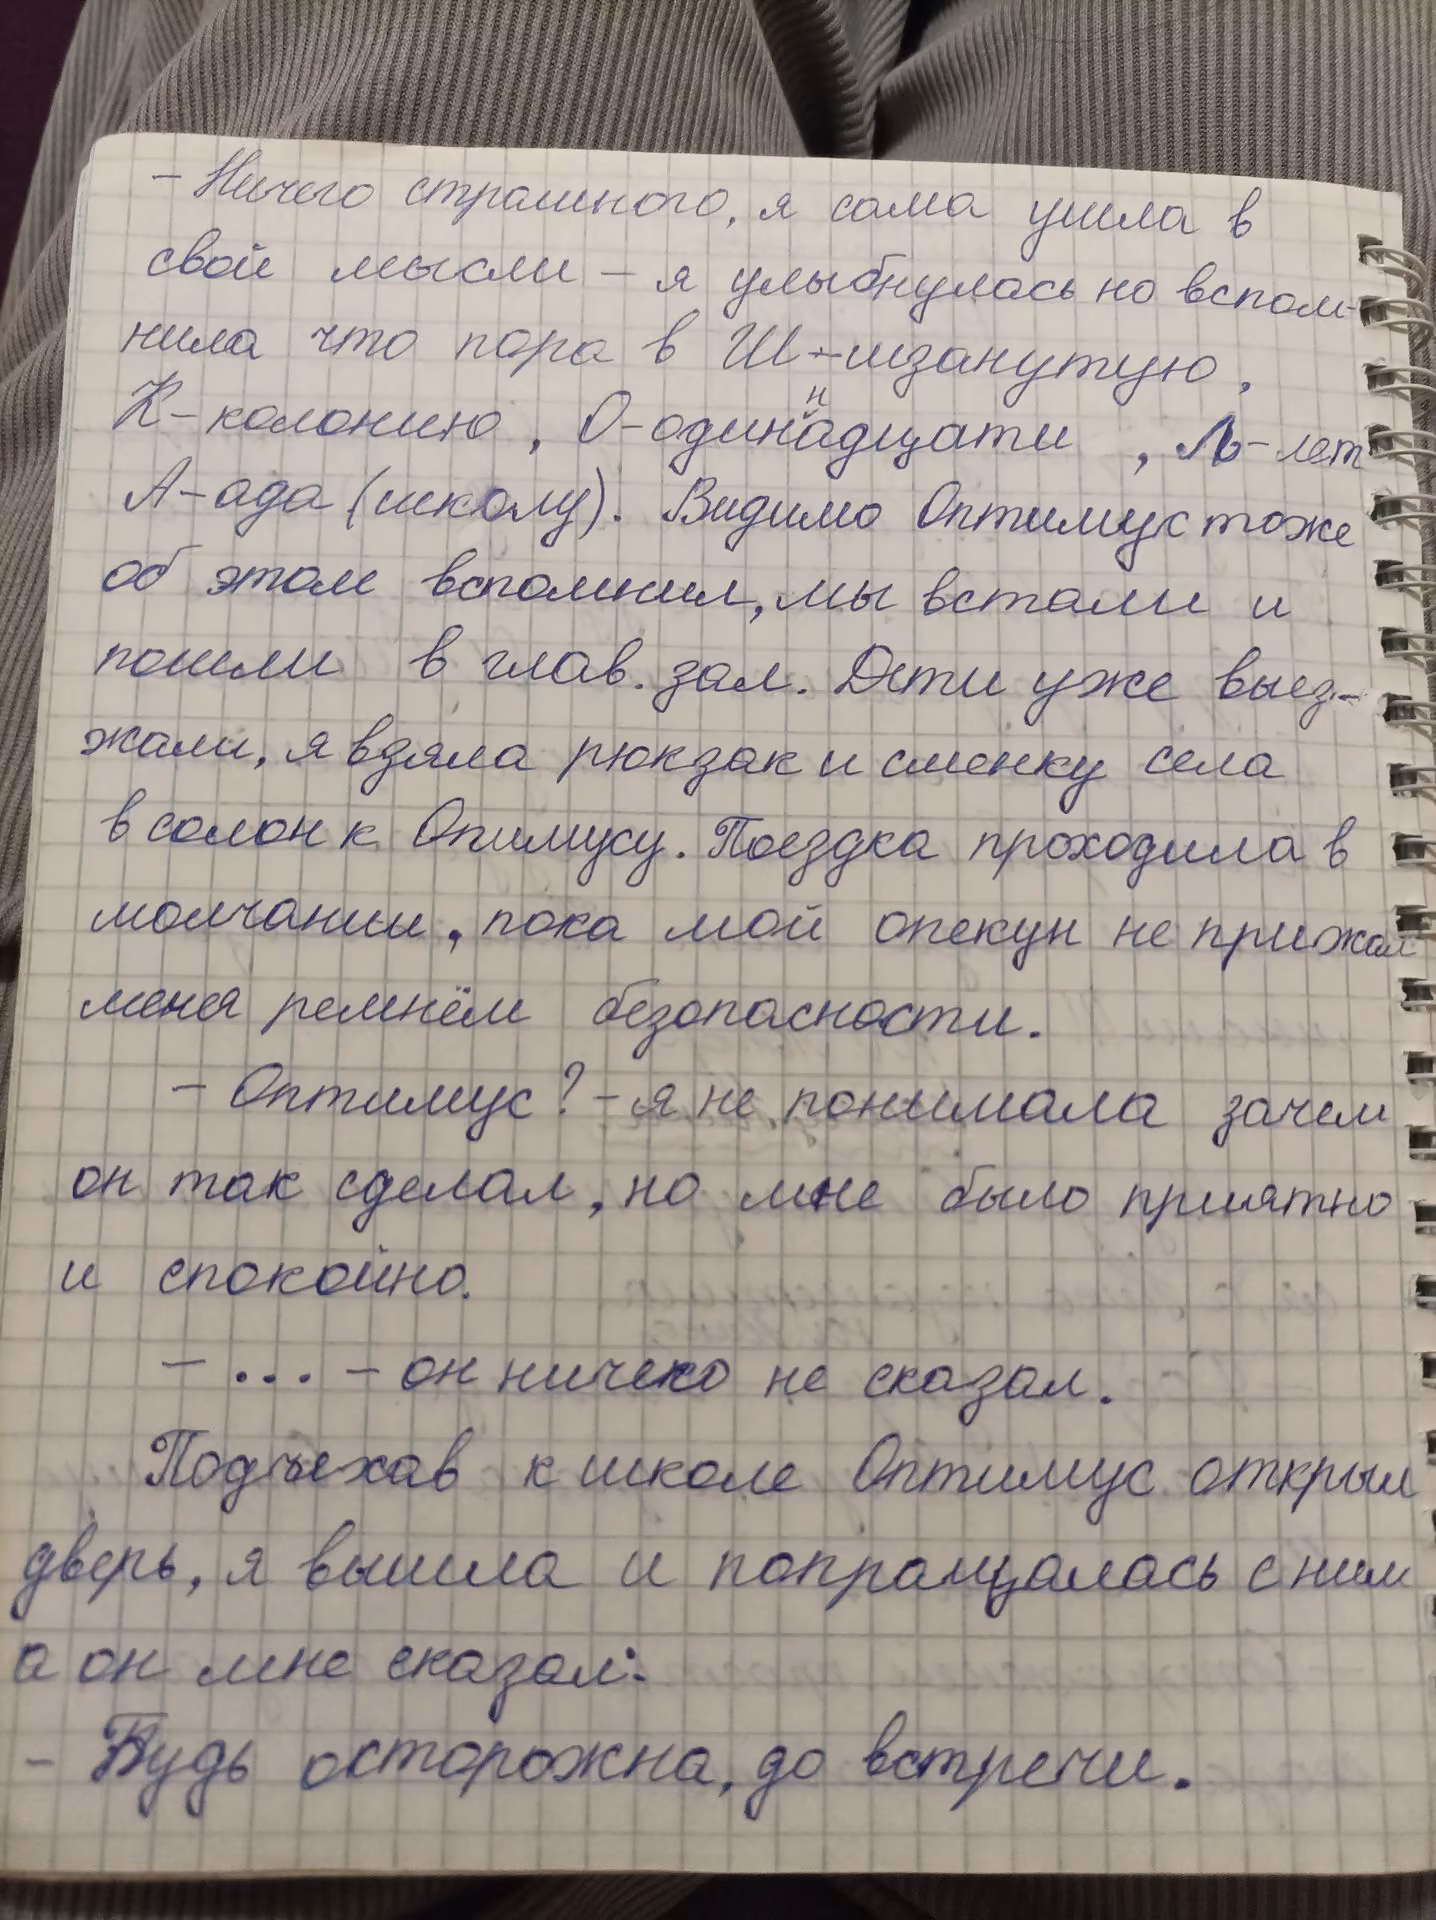 - Ничего страшного, я сама ушла в
свои мысли - я улыбнулась но вспом-
нила что пора в Ш-шизанутую,
К-колонию, О-одиннадцати, Ль-лет
А-ада (школу). Видимо Оптимус тоже
об этом вспомнил, мы встали и
пошли в глав. зал. Дети уже выез-
жали, я взяла рюкзак и сменку села
в салон к Опимусу. Поездка проходила в
молчании, пока мой опекун не прижал
меня ремнём безопасности.
- Оптимус? - я не понимала зачем
он так сделал, но мне было приятно
и спокойно.
- ... - он ничего не сказал.
Подъехав к школе Оптимус открыл
дверь, я вышла и попращалась с ним
а он мне сказал:
- Будь осторожна, до встречи.